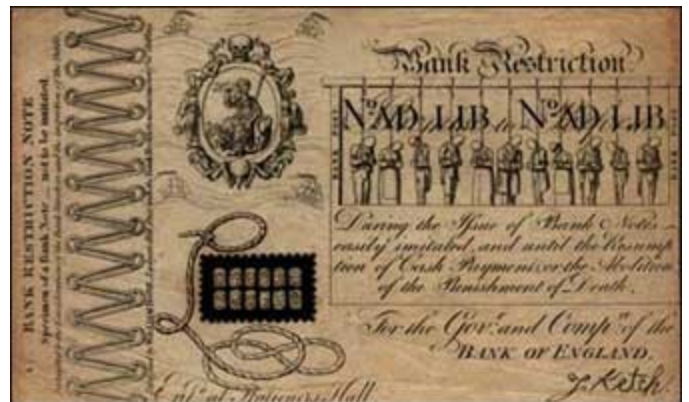 BANK RESTRICTION NOTE
Specimen of a Bank Note — not to be imitated.
Bank Restriction
No. AD LIB No. AD LIB
During the Issue of Bank Notes
easily imitated, and until the Resump
tion of Cash Payments, or the Abolition
of the Punishment of Death,
For the Govr. and Compa. of the
BANK OF ENGLAND.
J. Ketch.
Entd. at Stationers Hall